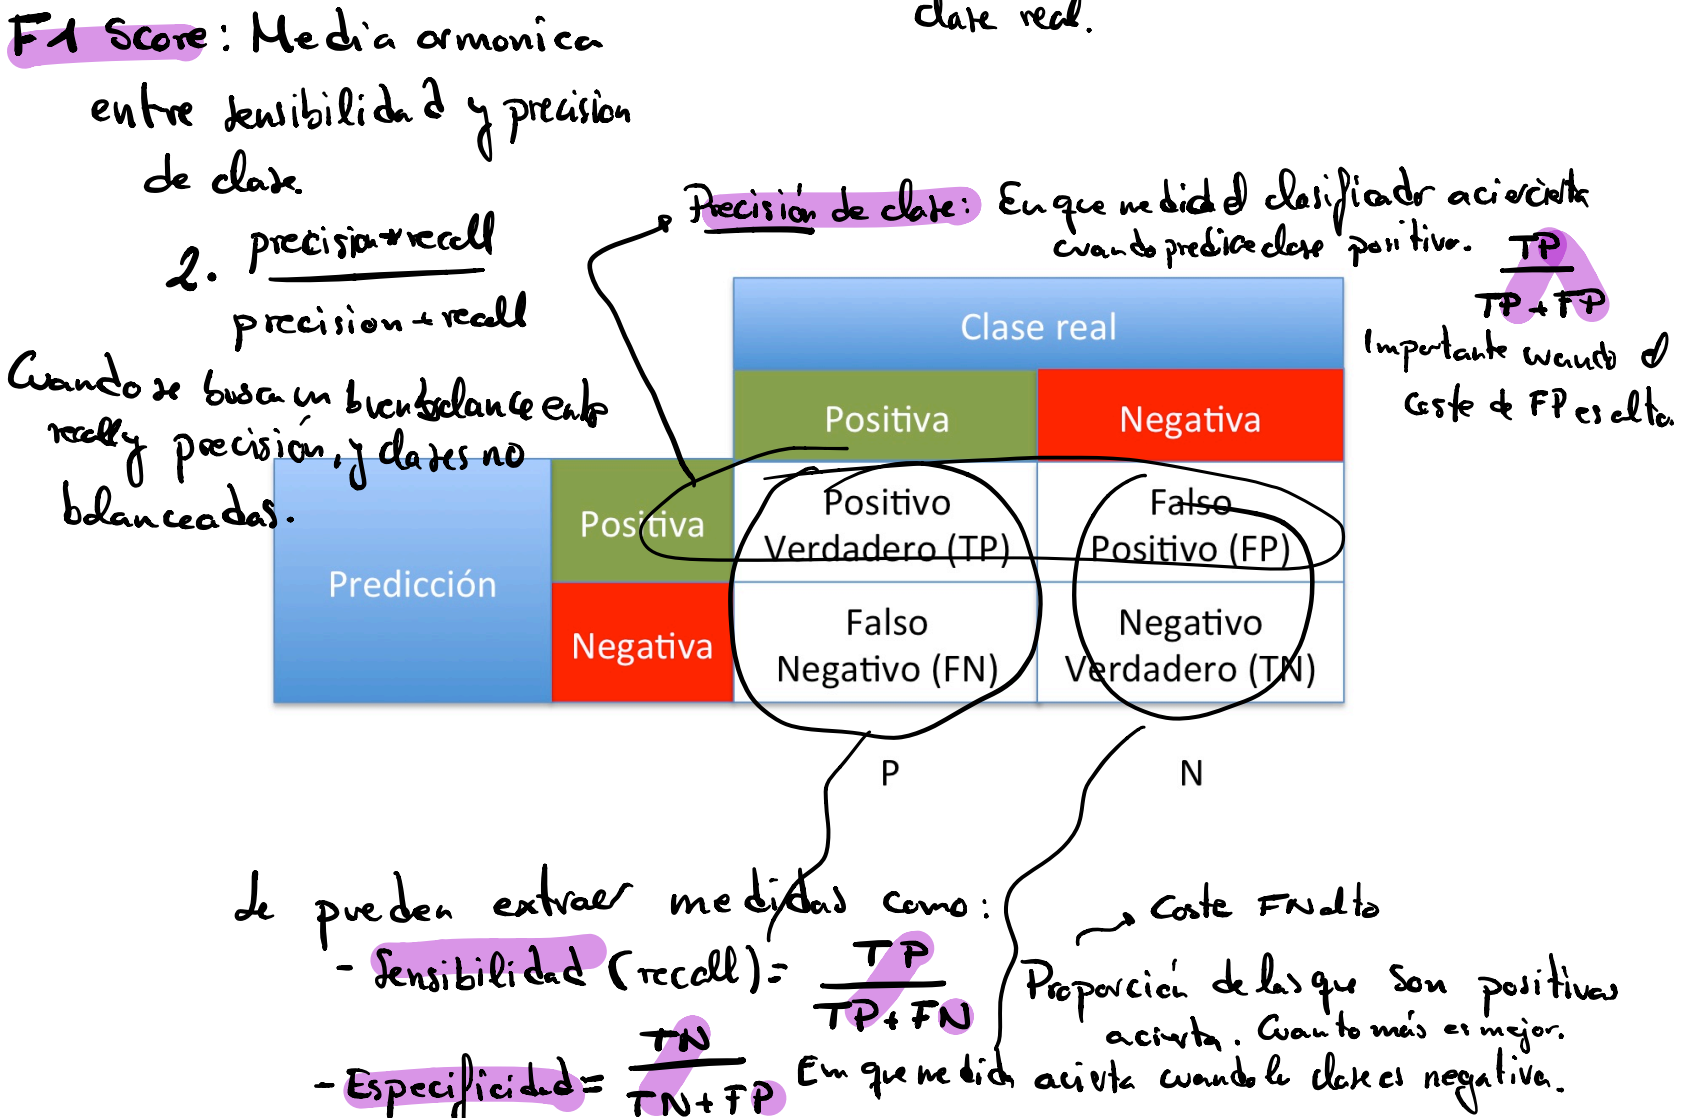 clase real.
F1 Score: Media armonica
entre sensibilidad y precision
de clase.
2. precision*recall
precision + recall
Cuando se busca un buen balance entre
recall y precisión, y clases no
balanceadas.
Precisión de clase: En que medida el clasificador
cuando predice clase positiva.
TP
TP + FP
Importante cuando el
coste de FP es alto.
Clase real
Positiva Negativa
Predicción
Positiva
Positivo
Verdadero (TP)
Falso
Positivo (FP)
Negativa
Falso
Negativo (FN)
Negativo
Verdadero (TN)
P N
Se pueden extraer medidas como:
- Sensibilidad (recall) =
TP
TP + FN
Coste FN alto
Proporción de las que son positivas
acierta. Cuanto más es mejor.
- Especificidad =
TN
TN + FP
En que medida acierta cuando la clase es negativa.